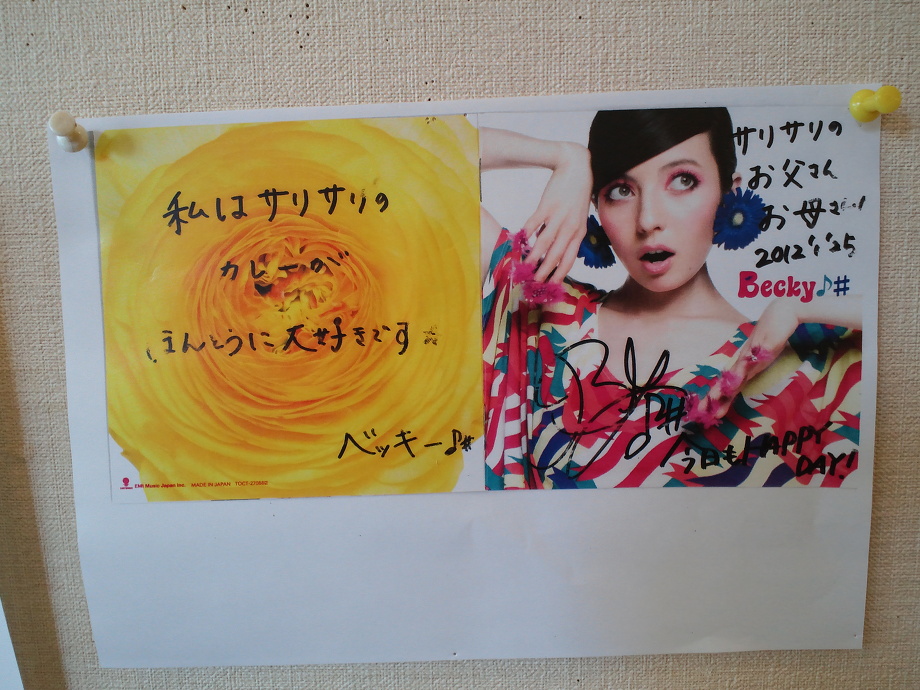 私はサリサリの
カレーが
ほんとうに大好きです☆
ベッキー♪#
EMI Music Japan Inc. MADE IN JAPAN
サリサリの
お父さん
お母さん!
2012'1'25
Becky♪#
♪#
今日もHAPPY
DAY!